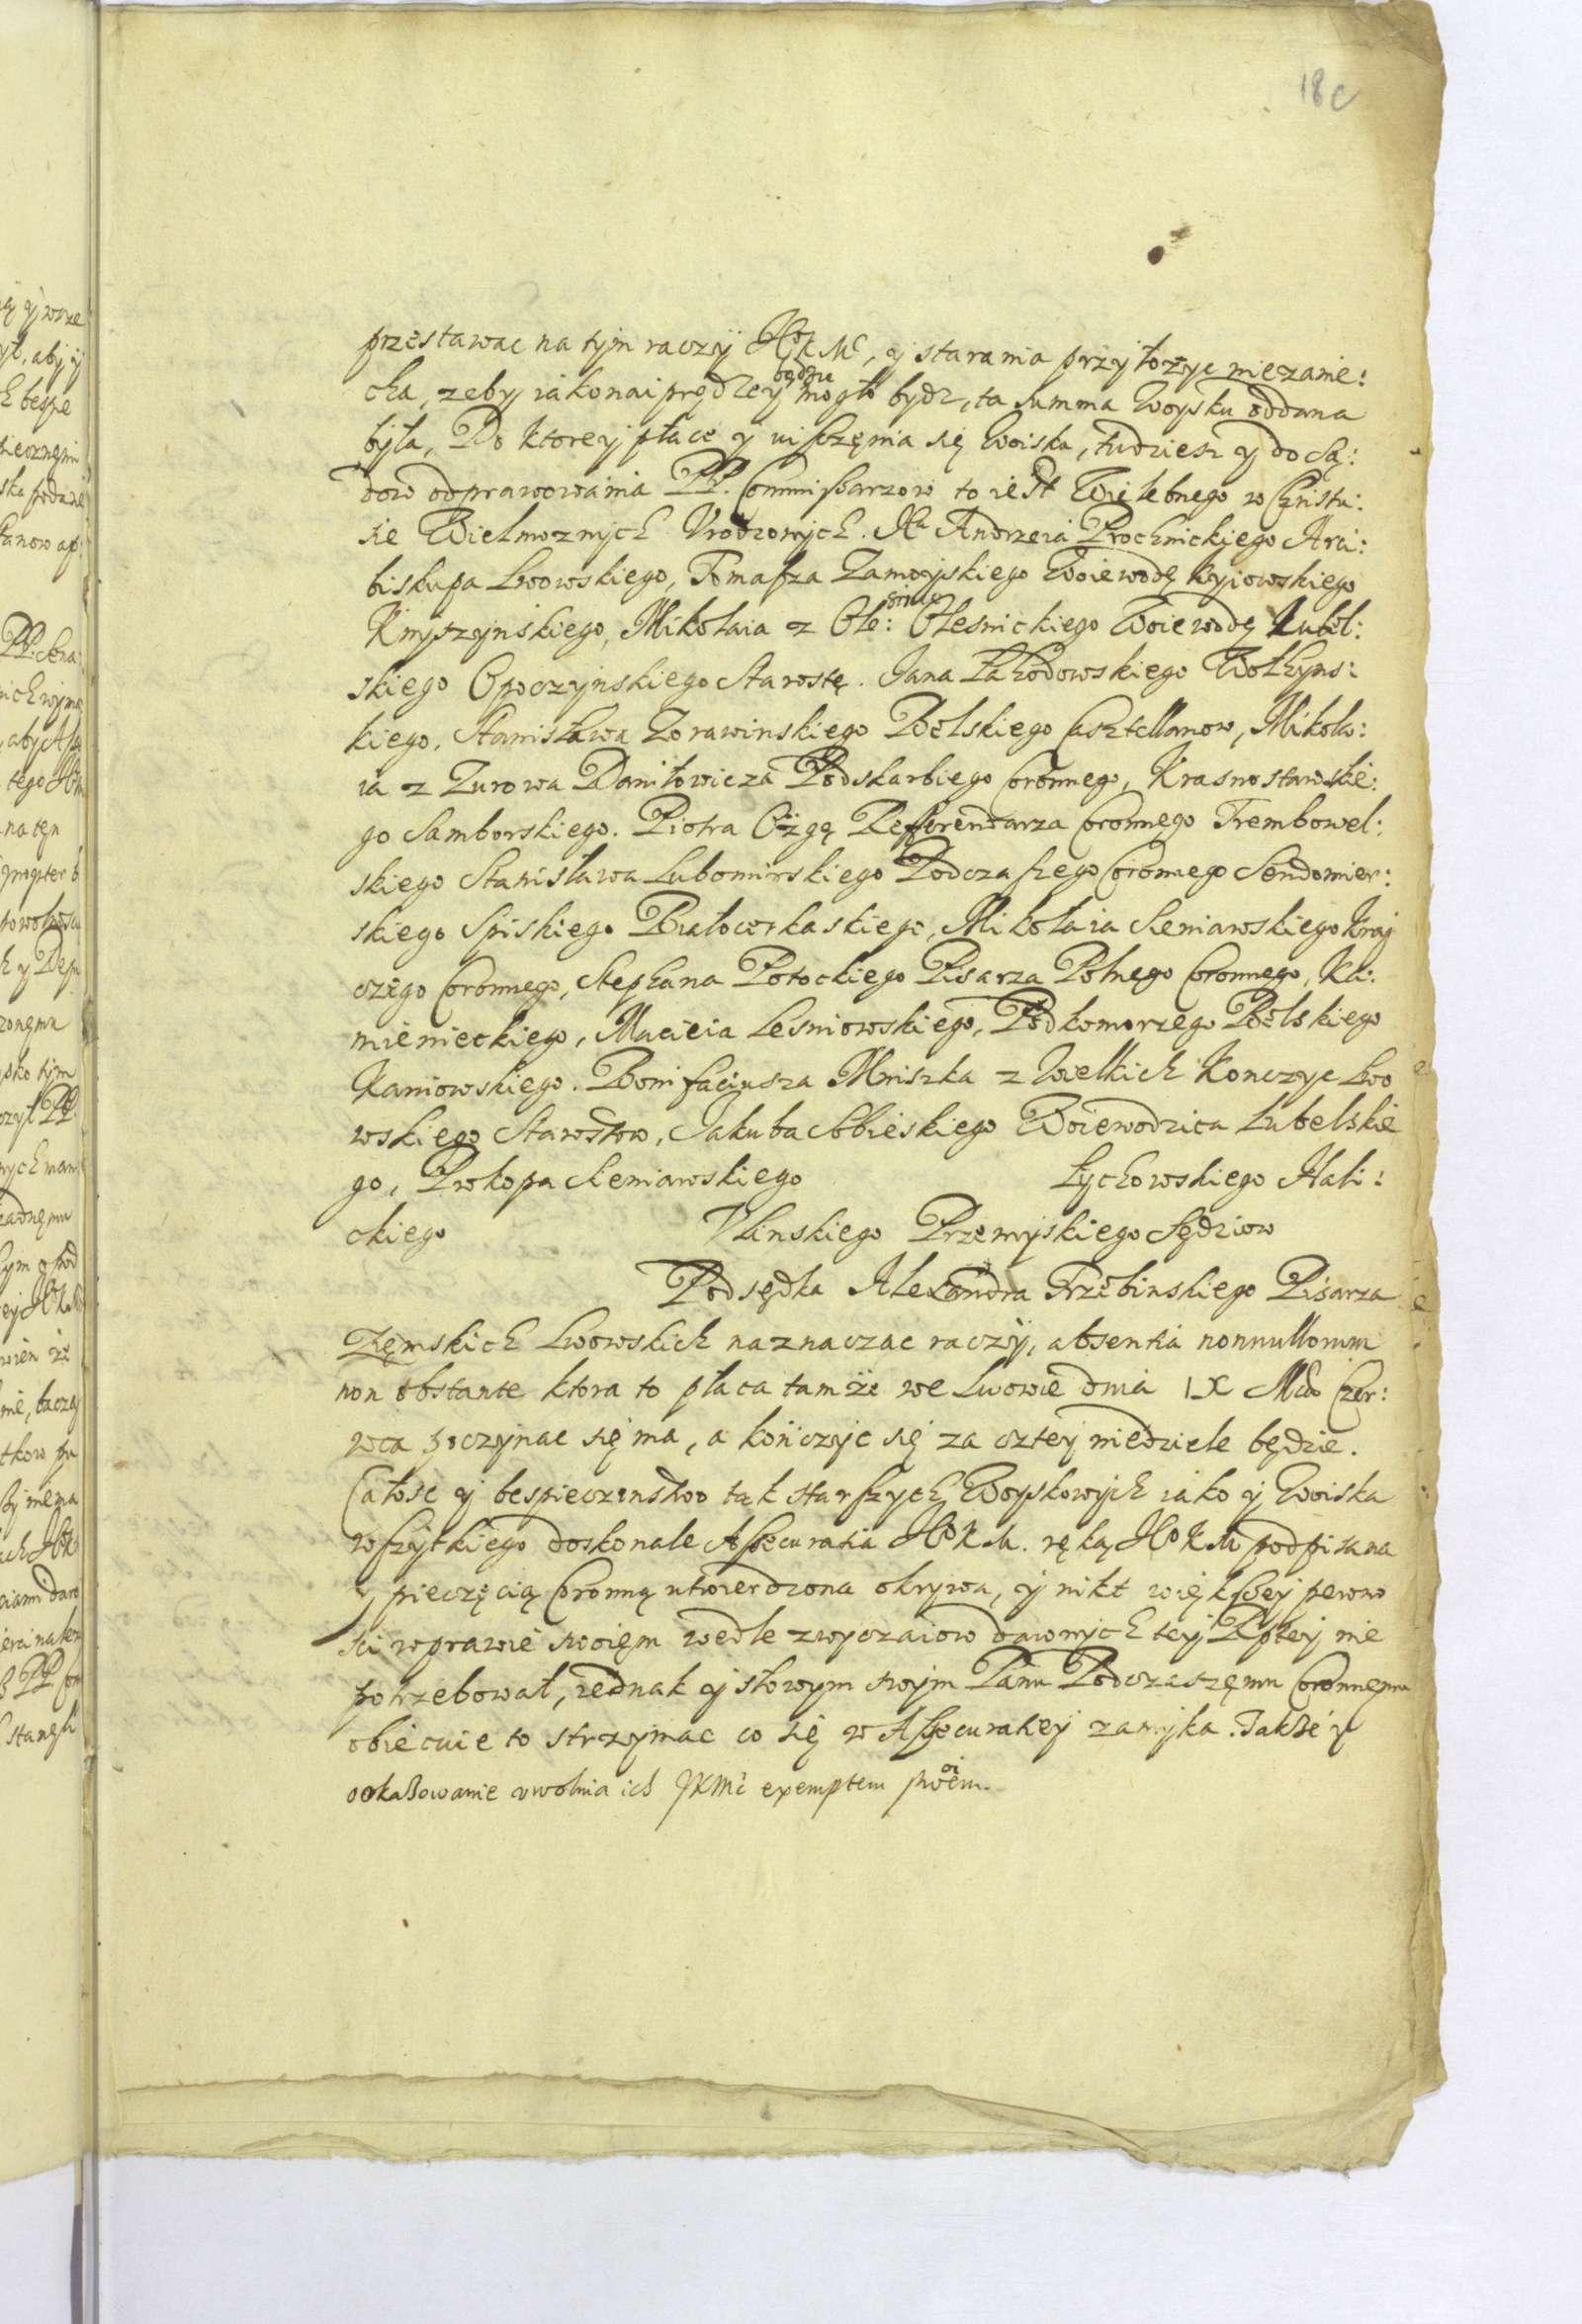 18c
przestawac na tym raczy JKMć, y starania przyłozyc niezanie:
cha, zeby iako naiprędzey będzie mogło bydz, ta summa Woysku oddana
była, Do ktorey płace y uisczęnia się Woiska, tudziesz y do Są:
dow odprawowania PP. Commissarzow to iest Wielebnego w Christu:
sie Wielmoznych Vrodzonych. Xa Andrzeia Prochnickiego Arci:
biskupa Lwowskiego, Tomasza Zamoyskiego Woiewodę Kyiowskiego
Knyszynskiego, Mikołaia z Ole: snice Olesnickiego Woiewodę Lubel:
skiego Opoczynskiego Starostę. Jana Lahodowskiego Wołhyns:
kiego, Stanisława Zorawinskiego Bełskiego Casztellanow, Mikoła:
ia z Zurowa Daniłowicza Podskarbiego Coronnego, Krasnostawskie:
go Samborskiego. Piotra Ozgę Refferendarza Coronnego Trembowel:
skiego Stanisława Lubomirskiego Podczaszego Coronnego Sendomier:
skiego Spiskiego Białocerkaskiego, Mikołaia Sieniawskiego Kraj
czego Coronnego, Stephana Potockiego Pisarza Polnego Coronnego, Ka:
mienieckiego, Macieia Lesniowskiego, Podkomorzego Bełskiego
Kaniowskiego. Bonifaciusza Mniszka z Wielkich Konczyc Lwo
wskiego Starostow, Jakuba Sobieskiego Woiewodzica Lubelskie
go, Prokopa Sieniawskiego Łychowskiego Hali:
ckiego Vlinskiego Przemyskiego Sędziow
Podsędka Alexandra Trzebinskiego Pisarza
Zięmskich Lwowskich naznaczac raczy, absentia nonnullorum
non obstante ktora to płaca tamże we Lwowie dnia IX Mca Czer:
wca poczynac się ma, a kończyc się za cztey niedziele będzie.
Całosc y bespieczenstwo tak starszych Woyskowych iako y Woiska
wszytkiego doskonale Assecuratia JKM. ręką JKM podpisana
y pieczęcią Coronną utwierdzona okrywa, y nikt większey pewno
sci wprawie swoięm wedle zwyczaiow dawnych tey Rptey nie
potrzebował, iednak y słowym swym Panu Podczaszęmu Coronnęmu
obiecuie to strzymac co się w Assecuratiey zamyka. Takze y
ookaBowanie vwolnia ich JKMć exemptem swoiem.